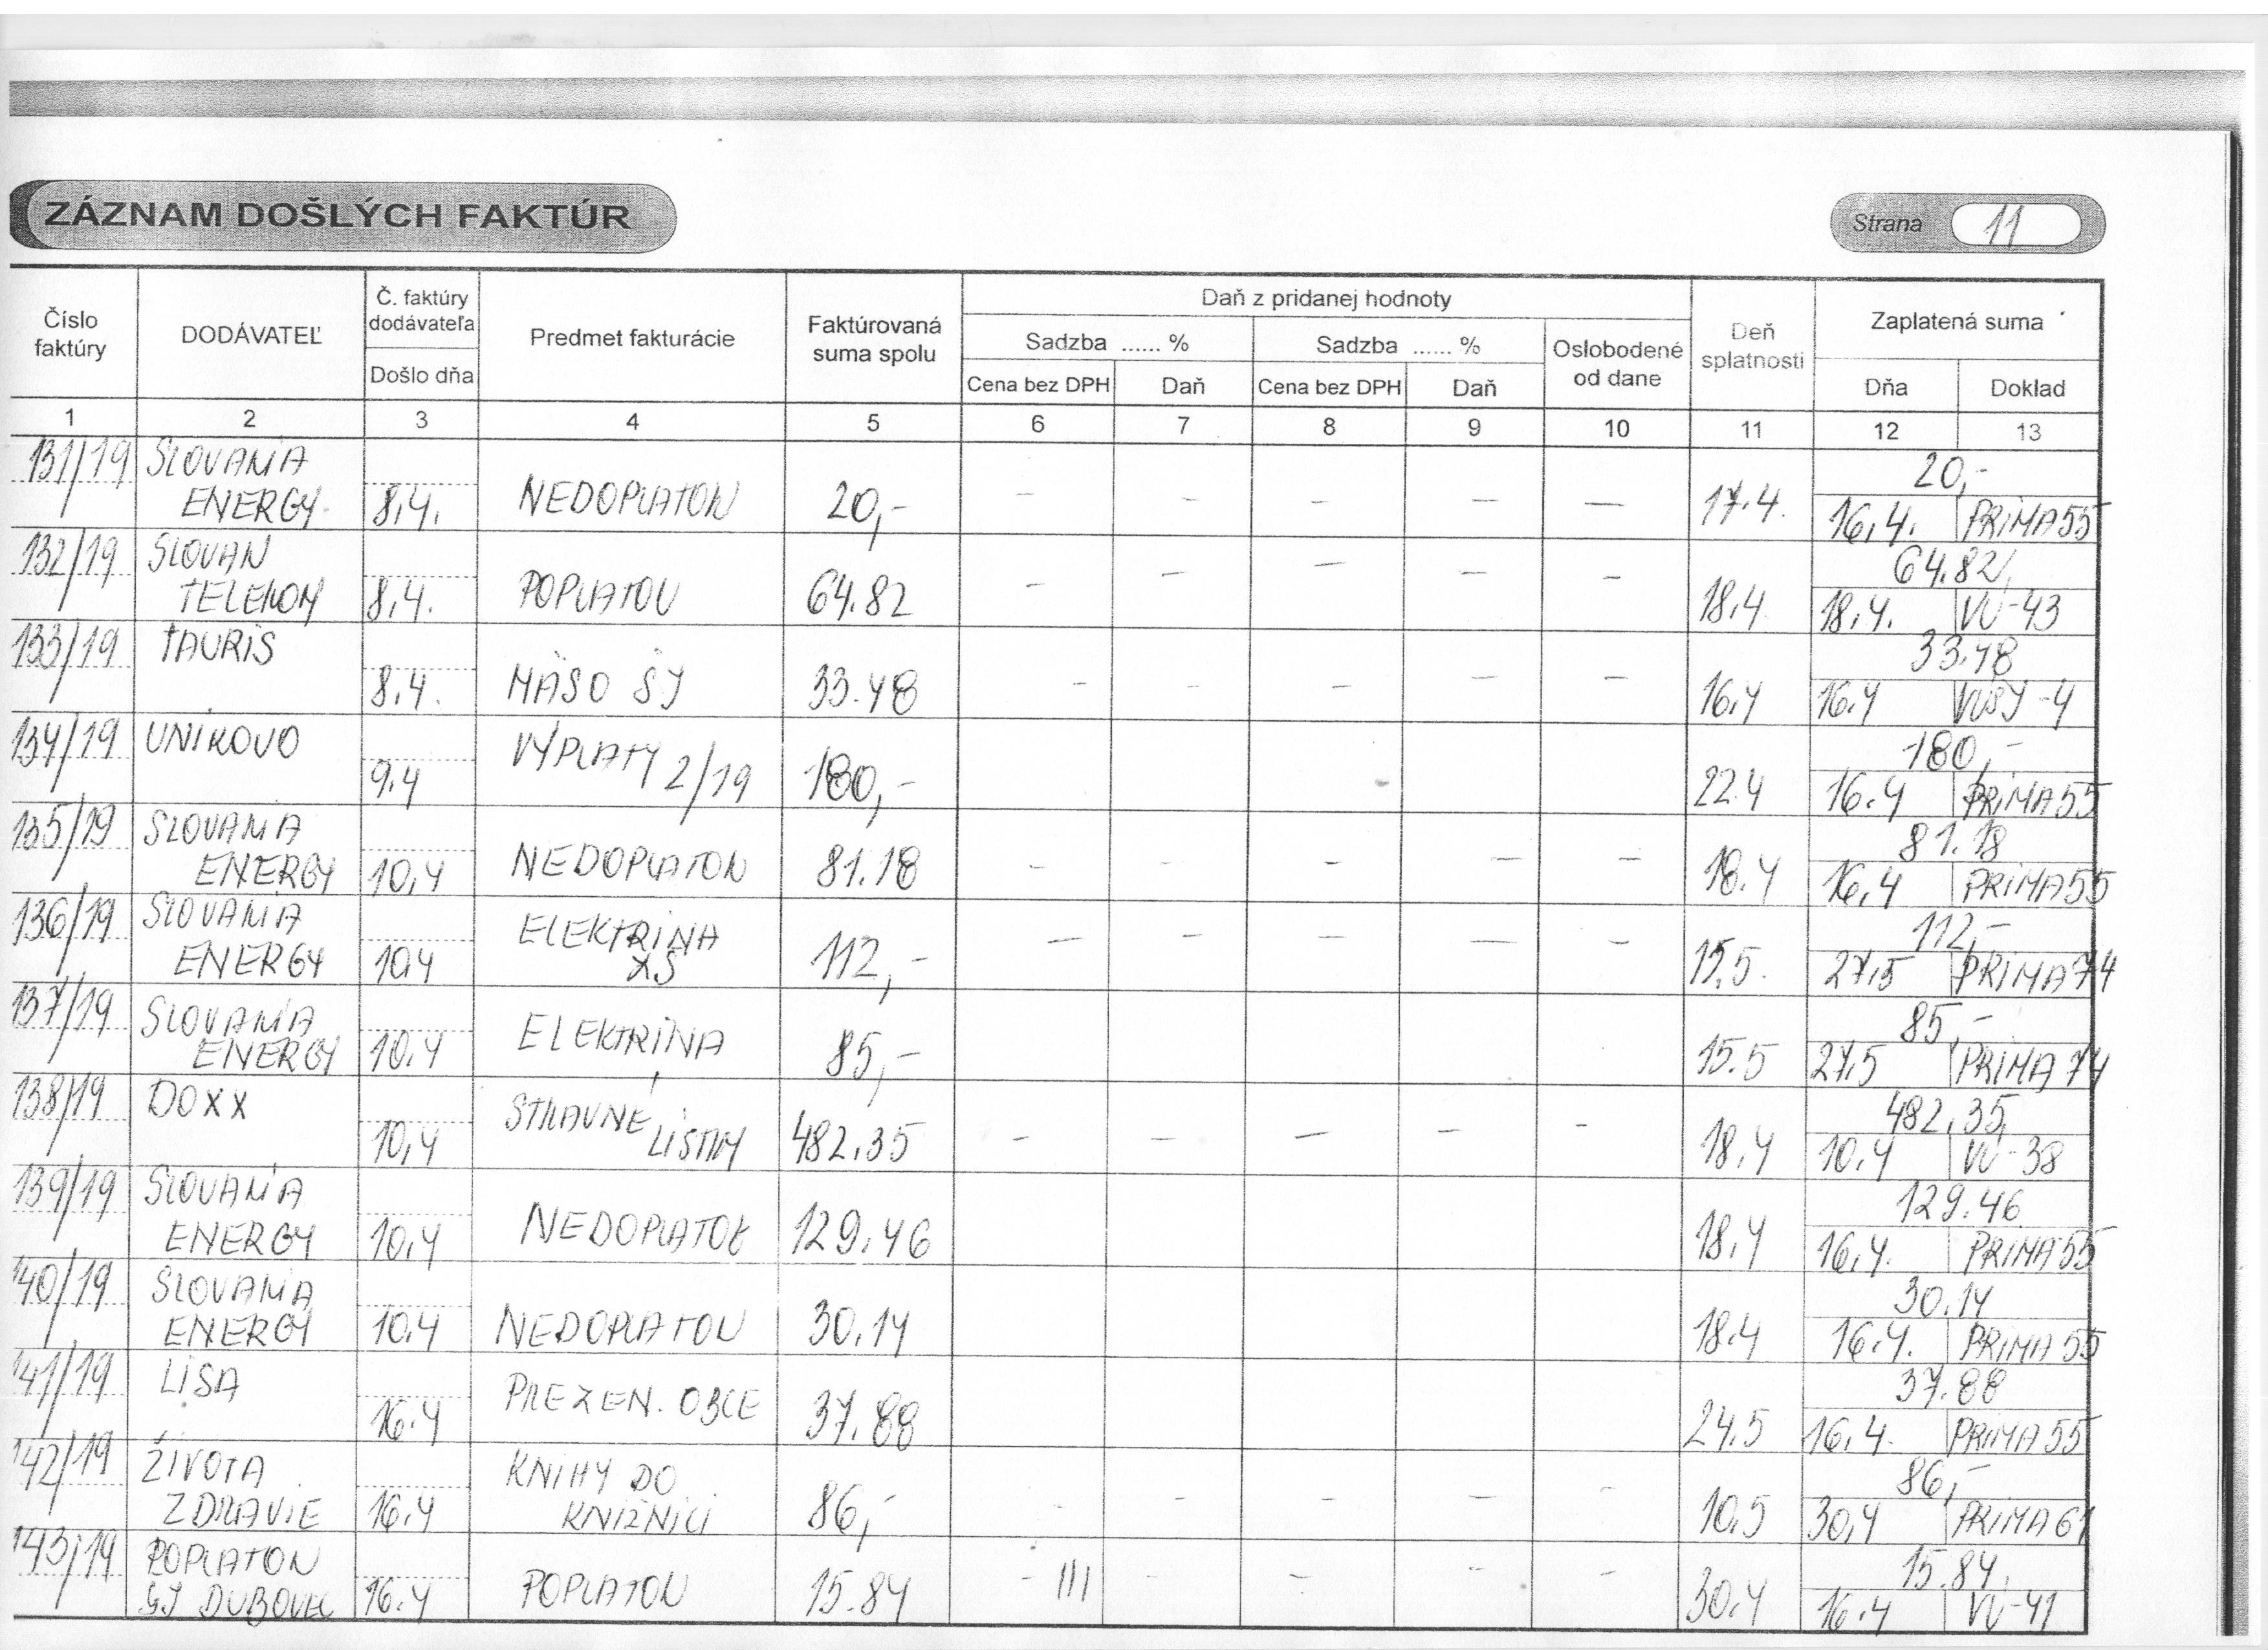 ZÁZNAM DOŠLÝCH FAKTÚR
Strana 11
Číslo faktúry
DODÁVATEĽ
Č. faktúry dodávateľa
Došlo dňa
Predmet fakturácie
Faktúrovaná suma spolu
Daň z pridanej hodnoty
Sadzba ...... %
Sadzba ...... %
Cena bez DPH
Daň
Cena bez DPH
Daň
Oslobodené od dane
Deň splatnosti
Zaplatená suma
Dňa
Doklad
1 2 3 4 5 6 7 8 9 10 11 12 13
131/19 SLOVAKIA 20,-
ENERGY 8.4. NEDOPLATOK 20,- - - - - - 17.4. 16.4. PRIMA 55
132/19 SLOVAK 64.82
TELEKOM 8.4. POPLATOK 64.82 - - - - - 18.4 18.4. VÚ-43
133/19 TAURIS 33.48
8.4. MÄSO ŠJ 33.48 - - - - - 16.4 16.4 VÚŠJ-4
134/19 UNIKOVO 180,-
9.4 VÝPLATY 2/19 180,- 22.4 16.4 PRIMA 55
135/19 SLOVAKIA 81.18
ENERGY 10.4 NEDOPLATOK 81.18 - - - - - 18.4 16.4 PRIMA 55
136/19 SLOVAKIA ELEKTRINA 112,-
ENERGY 10.4 ZŠ 112,- - - - - - 15.5. 27.5 PRIMA 74
137/19 SLOVAKIA 85,-
ENERGY 10.4 ELEKTRINA 85,- 15.5 27.5 PRIMA 74
138/19 DOXX STRAVNÉ 482,35
10.4 LÍSTKY 482.35 - - - - - 18.4 10.4 VÚ-38
139/19 SLOVAKIA 129.46
ENERGY 10.4 NEDOPLATOK 129.46 18.4 16.4. PRIMA 55
140/19 SLOVAKIA 30.14
ENERGY 10.4 NEDOPLATOK 30.14 18.4 16.4. PRIMA 55
141/19 LISA 37.88
16.4 PREZEN. OBCE 37.88 24.5 16.4. PRIMA 55
142/19 ŽIVOTA KNIHY DO 86,-
ZDRAVIE 16.4 KNIŽNICI 86,- - - - - - 10.5 30.4 PRIMA 61
143/19 POPLATOK 15.84
ŠJ DUBOVEC 16.4 POPLATOK 15.84 - - - - - 30.4 16.4 VÚ-41